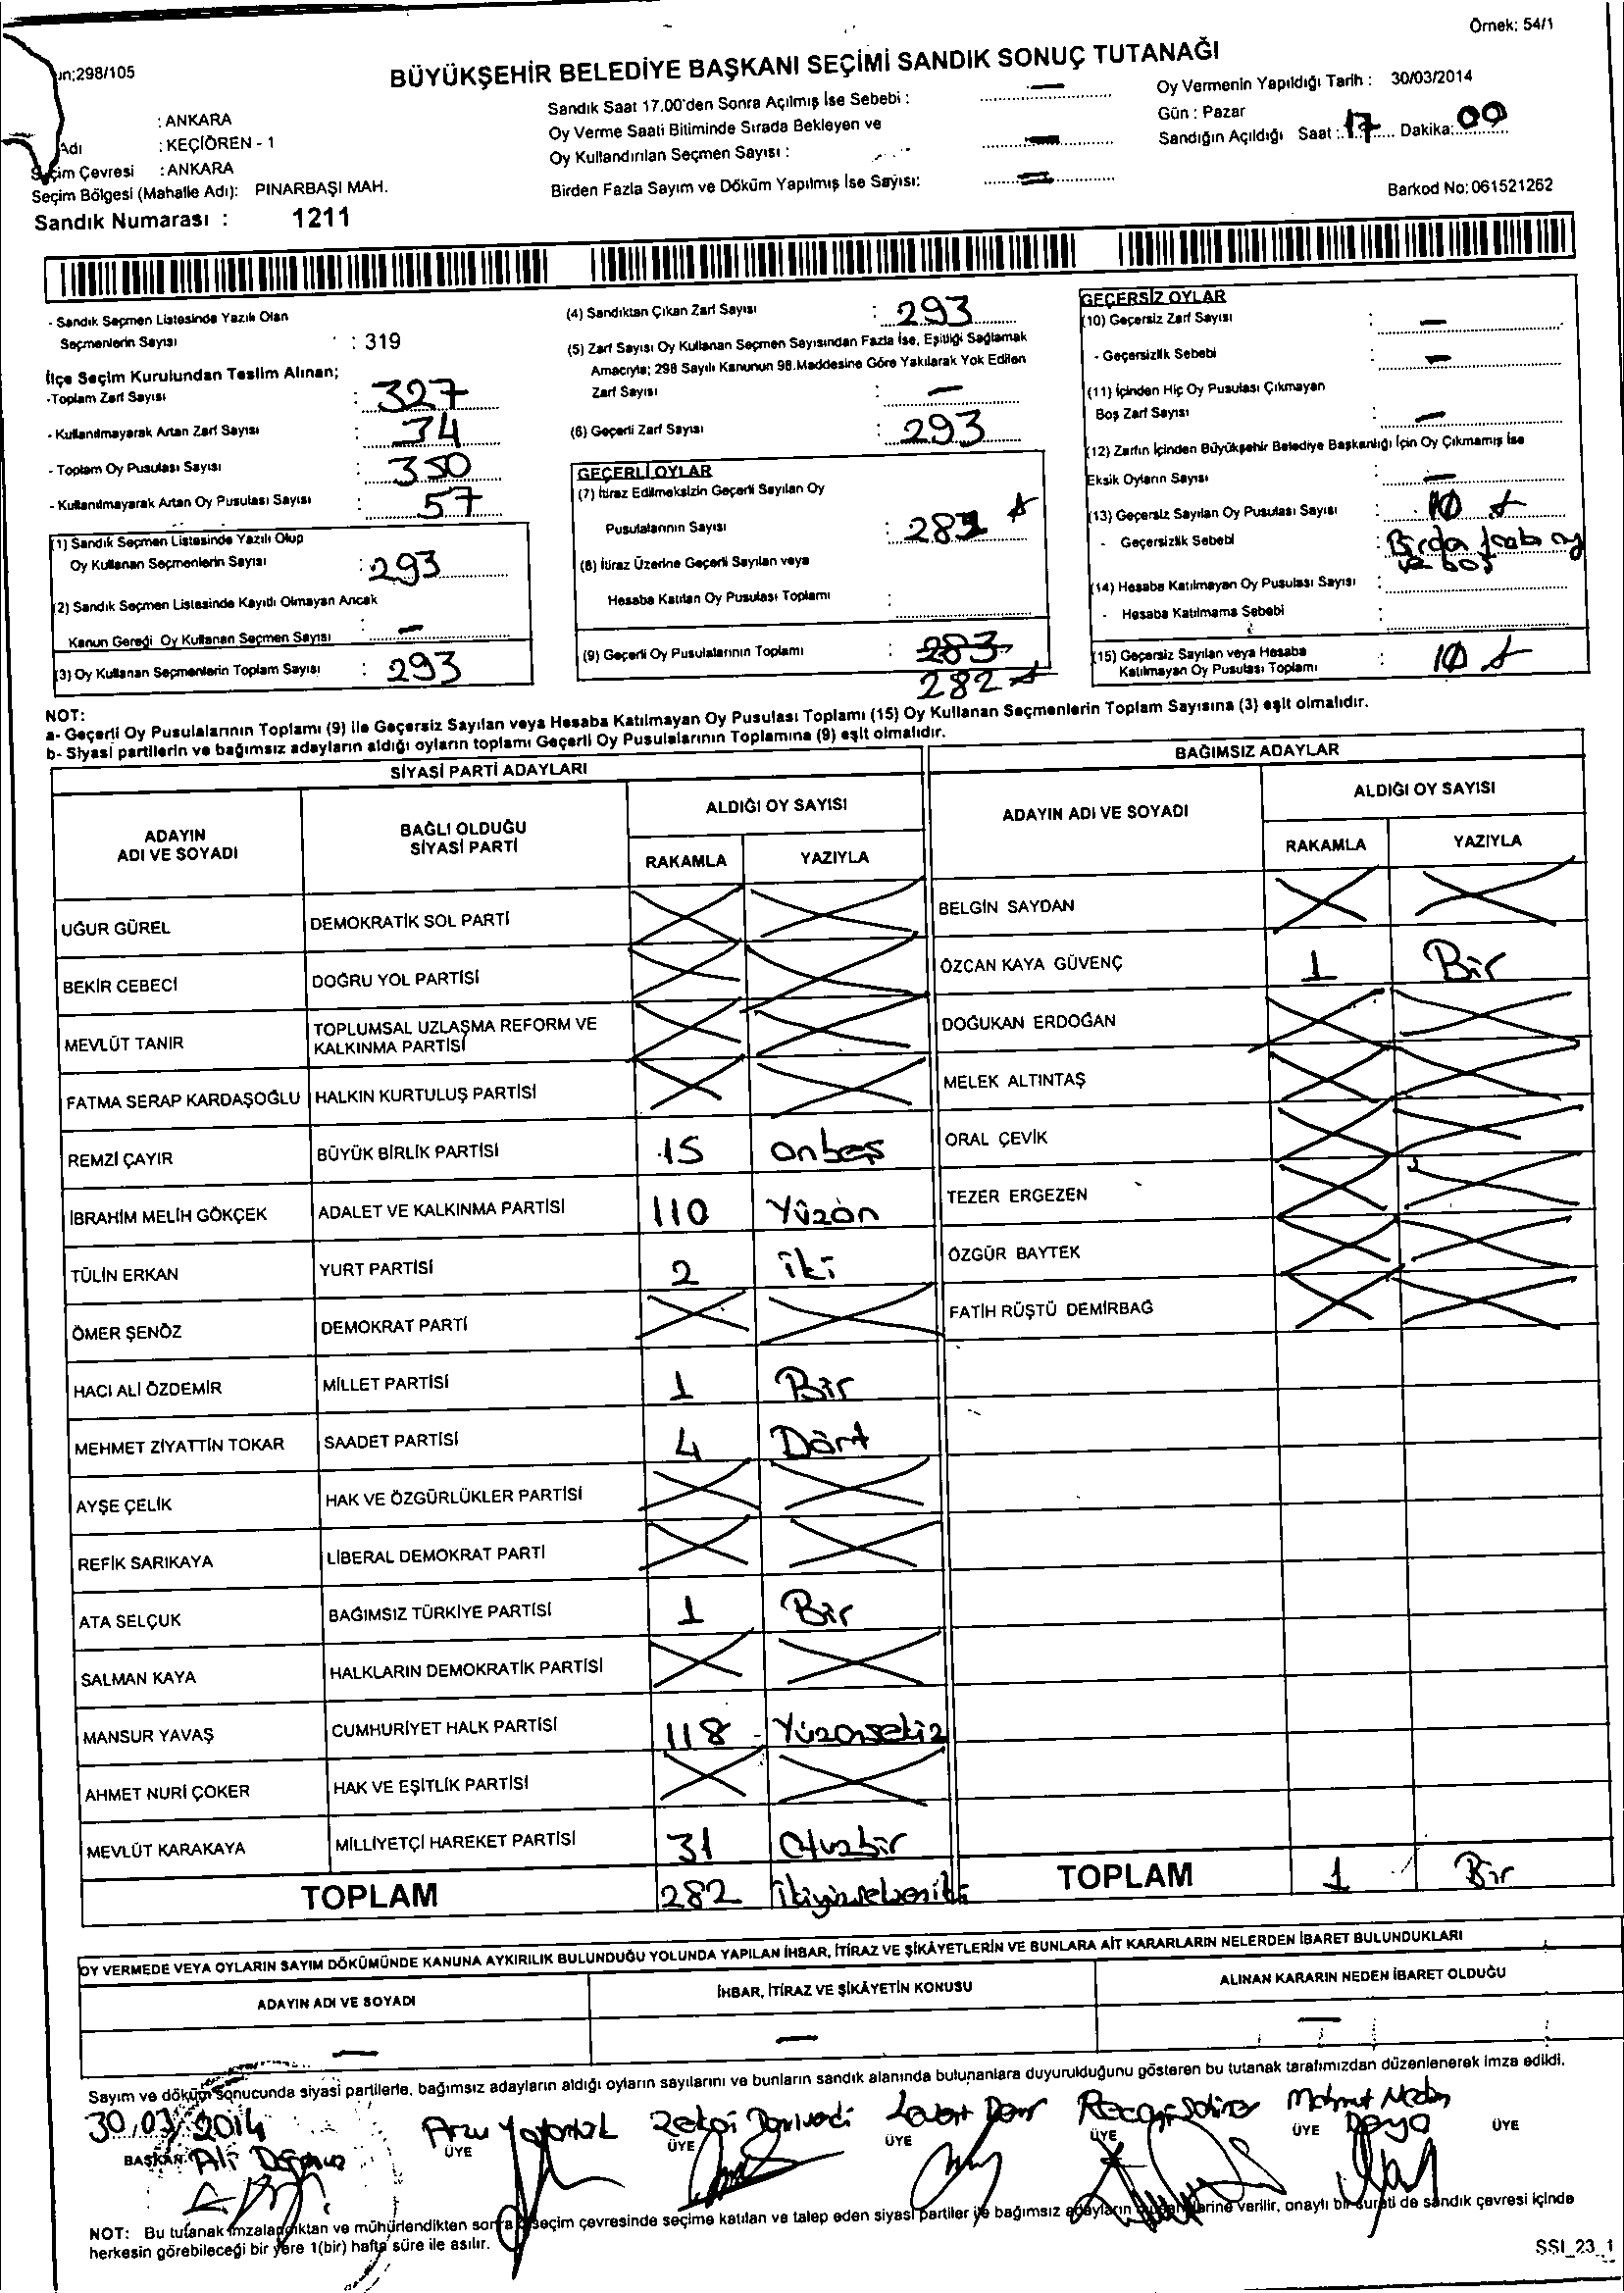 Örnek: 54/1
298/105
BÜYÜKŞEHİR BELEDİYE BAŞKANI SEÇİMİ SANDIK SONUÇ TUTANAĞI
: ANKARA
Adı : KEÇİÖREN - 1
Seçim Çevresi : ANKARA
Seçim Bölgesi (Mahalle Adı): PINARBAŞI MAH.
Sandık Numarası : 1211
Sandık Saat 17.00'den Sonra Açılmış İse Sebebi : —
Oy Verme Saati Bitiminde Sırada Bekleyen ve
Oy Kullandırılan Seçmen Sayısı : —
Birden Fazla Sayım ve Döküm Yapılmış İse Sayısı: —
Oy Vermenin Yapıldığı Tarih : 30/03/2014
Gün : Pazar
Sandığın Açıldığı Saat : 17 Dakika: 00
Barkod No: 061521262
- Sandık Seçmen Listesinde Yazılı Olan
Seçmenlerin Sayısı : 319
İlçe Seçim Kurulundan Teslim Alınan;
-Toplam Zarf Sayısı : 327
- Kullanılmayarak Artan Zarf Sayısı : 34
- Toplam Oy Pusulası Sayısı : 350
- Kullanılmayarak Artan Oy Pusulası Sayısı : 57
(1) Sandık Seçmen Listesinde Yazılı Olup
Oy Kullanan Seçmenlerin Sayısı : 293
(2) Sandık Seçmen Listesinde Kayıtlı Olmayan Ancak
Kanun Gereği Oy Kullanan Seçmen Sayısı : —
(3) Oy Kullanan Seçmenlerin Toplam Sayısı : 293
(4) Sandıktan Çıkan Zarf Sayısı : 293
(5) Zarf Sayısı Oy Kullanan Seçmen Sayısından Fazla İse, Eşitliği Sağlamak
Amacıyla; 298 Sayılı Kanunun 98.Maddesine Göre Yakılarak Yok Edilen
Zarf Sayısı : —
(6) Geçerli Zarf Sayısı : 293
GEÇERLİ OYLAR
(7) İtiraz Edilmeksizin Geçerli Sayılan Oy
Pusulalarının Sayısı :
(8) İtiraz Üzerine Geçerli Sayılan veya
Hesaba Katılan Oy Pusulası Toplamı :
(9) Geçerli Oy Pusulalarının Toplamı : 283
282
GEÇERSİZ OYLAR
(10) Geçersiz Zarf Sayısı : —
- Geçersizlik Sebebi : —
(11) İçinden Hiç Oy Pusulası Çıkmayan
Boş Zarf Sayısı : —
(12) Zarfın İçinden Büyükşehir Belediye Başkanlığı İçin Oy Çıkmamış İse
Eksik Oyların Sayısı : —
(13) Geçersiz Sayılan Oy Pusulası Sayısı : 10
- Geçersizlik Sebebi : Birden fazla oy
ve boş
(14) Hesaba Katılmayan Oy Pusulası Sayısı :
- Hesaba Katılmama Sebebi :
(15) Geçersiz Sayılan veya Hesaba
Katılmayan Oy Pusulası Toplamı : 10
NOT:
a- Geçerli Oy Pusulalarının Toplamı (9) ile Geçersiz Sayılan veya Hesaba Katılmayan Oy Pusulası Toplamı (15) Oy Kullanan Seçmenlerin Toplam Sayısına (3) eşit olmalıdır.
b- Siyasi partilerin ve bağımsız adayların aldığı oyların toplamı Geçerli Oy Pusulalarının Toplamına (9) eşit olmalıdır.
SİYASİ PARTİ ADAYLARI
ADAYIN
ADI VE SOYADI
BAĞLI OLDUĞU
SİYASİ PARTİ
ALDIĞI OY SAYISI
RAKAMLA YAZIYLA
UĞUR GÜREL DEMOKRATİK SOL PARTİ
BEKİR CEBECİ DOĞRU YOL PARTİSİ
MEVLÜT TANIR TOPLUMSAL UZLAŞMA REFORM VE
KALKINMA PARTİSİ
FATMA SERAP KARDAŞOĞLU HALKIN KURTULUŞ PARTİSİ
REMZİ ÇAYIR BÜYÜK BİRLİK PARTİSİ 15 onbeş
İBRAHİM MELİH GÖKÇEK ADALET VE KALKINMA PARTİSİ 110 Yüzon
TÜLİN ERKAN YURT PARTİSİ 2 iki
ÖMER ŞENÖZ DEMOKRAT PARTİ
HACI ALİ ÖZDEMİR MİLLET PARTİSİ 1 Bir
MEHMET ZİYATTİN TOKAR SAADET PARTİSİ 4 Dört
AYŞE ÇELİK HAK VE ÖZGÜRLÜKLER PARTİSİ
REFİK SARIKAYA LİBERAL DEMOKRAT PARTİ
ATA SELÇUK BAĞIMSIZ TÜRKİYE PARTİSİ 1 Bir
SALMAN KAYA HALKLARIN DEMOKRATİK PARTİSİ
MANSUR YAVAŞ CUMHURİYET HALK PARTİSİ 118 Yüzonsekiz
AHMET NURİ ÇOKER HAK VE EŞİTLİK PARTİSİ
MEVLÜT KARAKAYA MİLLİYETÇİ HAREKET PARTİSİ 31 Otuzbir
TOPLAM 282 ikiyüzsekseniki
BAĞIMSIZ ADAYLAR
ADAYIN ADI VE SOYADI
ALDIĞI OY SAYISI
RAKAMLA YAZIYLA
BELGİN SAYDAN
ÖZCAN KAYA GÜVENÇ 1 Bir
DOĞUKAN ERDOĞAN
MELEK ALTINTAŞ
ORAL ÇEVİK
TEZER ERGEZEN
ÖZGÜR BAYTEK
FATİH RÜŞTÜ DEMİRBAĞ
TOPLAM 1 Bir
OY VERMEDE VEYA OYLARIN SAYIM DÖKÜMÜNDE KANUNA AYKIRILIK BULUNDUĞU YOLUNDA YAPILAN İHBAR, İTİRAZ VE ŞİKÂYETLERİN VE BUNLARA AİT KARARLARIN NELERDEN İBARET BULUNDUKLARI
ADAYIN ADI VE SOYADI İHBAR, İTİRAZ VE ŞİKÂYETİN KONUSU ALINAN KARARIN NEDEN İBARET OLDUĞU
— — —
Sayım ve döküm sonucunda siyasi partilerle, bağımsız adayların aldığı oyların sayılarını ve bunların sandık alanında bulunanlara duyurulduğunu gösteren bu tutanak tarafımızdan düzenlenerek imza edildi.
30/03/2014
BAŞKAN Ali
Arzu ÜYE
ÜYE
ÜYE
ÜYE
ÜYE
ÜYE
NOT: Bu tutanak imzalandıktan ve mühürlendikten sonra seçim çevresinde seçime katılan ve talep eden siyasi partiler ile bağımsız adayların verilir, onaylı bir sureti de sandık çevresi içinde
herkesin görebileceği bir yere 1(bir) hafta süre ile asılır.
SSI_23_1